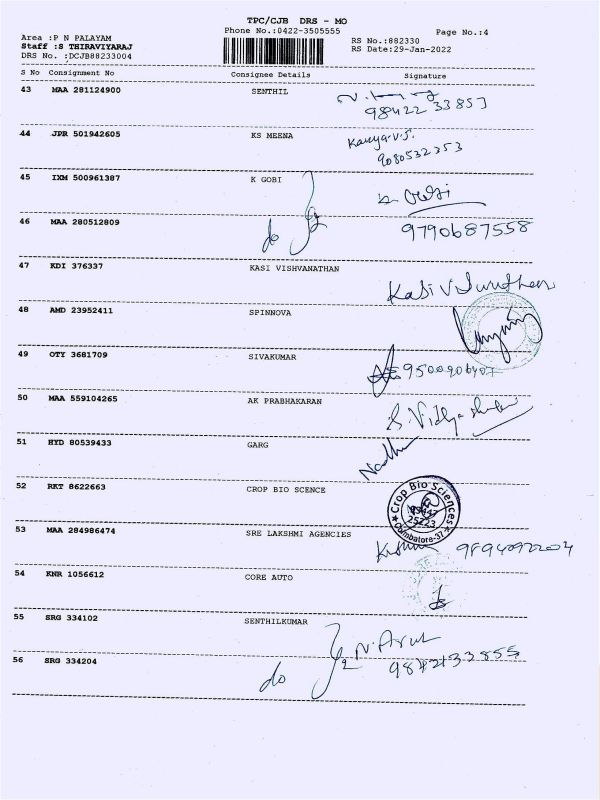 TPC/CJB DRS - MO
Phone No.:0422-3505555 Page No.:4
Area :P N PALAYAM RS No.:882330
Staff :S THIRAVIYARAJ RS Date:29-Jan-2022
DRS No. :DCJB88233004
S No Consignment No Consignee Details Signature
43 MAA 281124900 SENTHIL
98422 33853
44 JPR 501942605 KS MEENA Kavya.V.S.
9080532353
45 IXM 500961387 K GOBI
46 MAA 280512809 do 9790687558
47 KDI 376337 KASI VISHVANATHAN
Kasi
48 AMD 23952411 SPINNOVA
49 OTY 3681709 SIVAKUMAR
9500906407
50 MAA 559104265 AK PRABHAKARAN
S. Vidhya
51 HYD 80539433 GARG
52 RKT 8622663 CROP BIO SCENCE
Crop Bio Sciences
25223
Coimbatore-37
53 MAA 284986474 SRE LAKSHMI AGENCIES
9894092204
54 KNR 1056612 CORE AUTO
55 SRG 334102 SENTHILKUMAR
N. Arul
56 SRG 334204 do